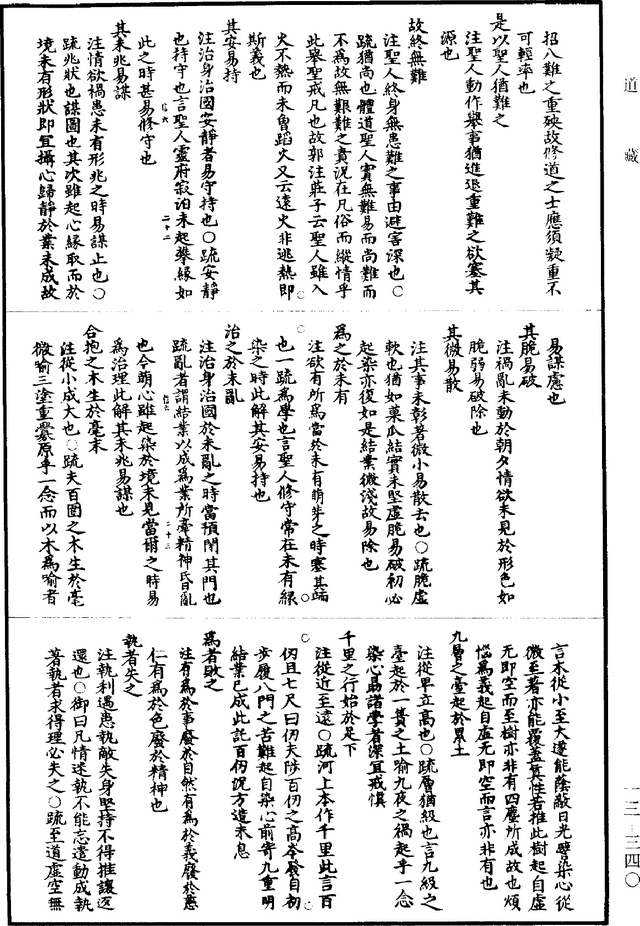 道藏
招八難之重殃故修道之士應須疑重不
可輕率也
是以聖人猶難之
注聖人動作舉事猶進退重難之欲塞其
源也
故終無難
注聖人終身無患難之事由避害深也○
疏猶尚也體道聖人實無難易而尚難而
不為故無艱難之責況在凡俗而縱情乎
此舉聖戒凡也故郭注莊子云聖人雖入
火不熱而未曾蹈火又云遠火非逃熱即
斯義也
其安易持
注治身治國安靜者易守持也○疏安靜
也持守也言聖人靈府寂泊未起攀緣如
此之時甚易修守也
其未兆易謀
注情欲禍患未有形兆之時易謀止也○
疏兆狀也謀圖也其次雖起心緣取而於
境未有形狀即宜攝心歸靜於業未成故
易謀慮也
其脆易破
注禍亂未動於朝夕情欲未見於形色如
脆弱易破除也
其微易散
注其事未彰著微小易散去也○疏脆虛
軟也猶如菓瓜結實未堅虛脆易破初必
起染亦復如是結業微淺故易除也
為之於未有
注欲有所為當於未有萌芽之時塞其端
也一疏為學也言聖人修守常在未有緣
染之時此解其安易持也
治之於未亂
注治身治國於未亂之時當預閉其門也
疏亂者謂結業以成為業所牽精神昏亂
也今萌心雖起染於境未見當爾之時易
為治理此解其未兆易謀也
合抱之木生於毫末
注從小成大也○疏夫百圍之木生於毫
微喻三塗重釁原乎一念而以木為喻者
言木從小至大遂能蔭蔽日光譬染心從
微至著亦能覆蓋真性若推此樹起自虛
无即空而至樹亦非有四塵所成故也煩
惱為義起自虛无即空而言亦非有也
九層之臺起於累土
注從卑立高也○疏層猶級也言九級之
臺起於一蕢之土喻九夜之禍起乎一念
染心勗諸學者深宜戒慎
千里之行始於足下
注從近至遠○疏河上本作千里此言百
仞且七尺曰仞夫陟百仞之高岑發自初
步履八門之苦難起自染心前寄九重明
結業已成此託百仞況方造未息
為者敗之
注有為於事廢於自然有為於義廢於慈
仁有為於色廢於精神也
執者失之
注執利遇患執敵失身堅持不得推讓返
還也○御曰凡情迷執不能忘遣動成執
著執者求得理必失之○疏至道虛空無
一三—三四〇